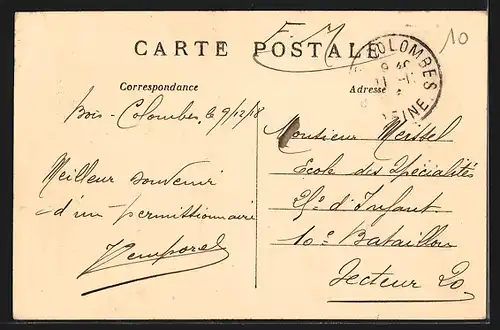 F. M.
10
CARTE POSTALE
COLOMBES
SEINE
Correspondance
Adresse
Bois-Colombes le 9/12/18
Meilleur souvenir
d'un permissionnaire
Monsieur Meissel
Ecole des Spécialités
d'Infant.
10e Bataillon
Secteur 20